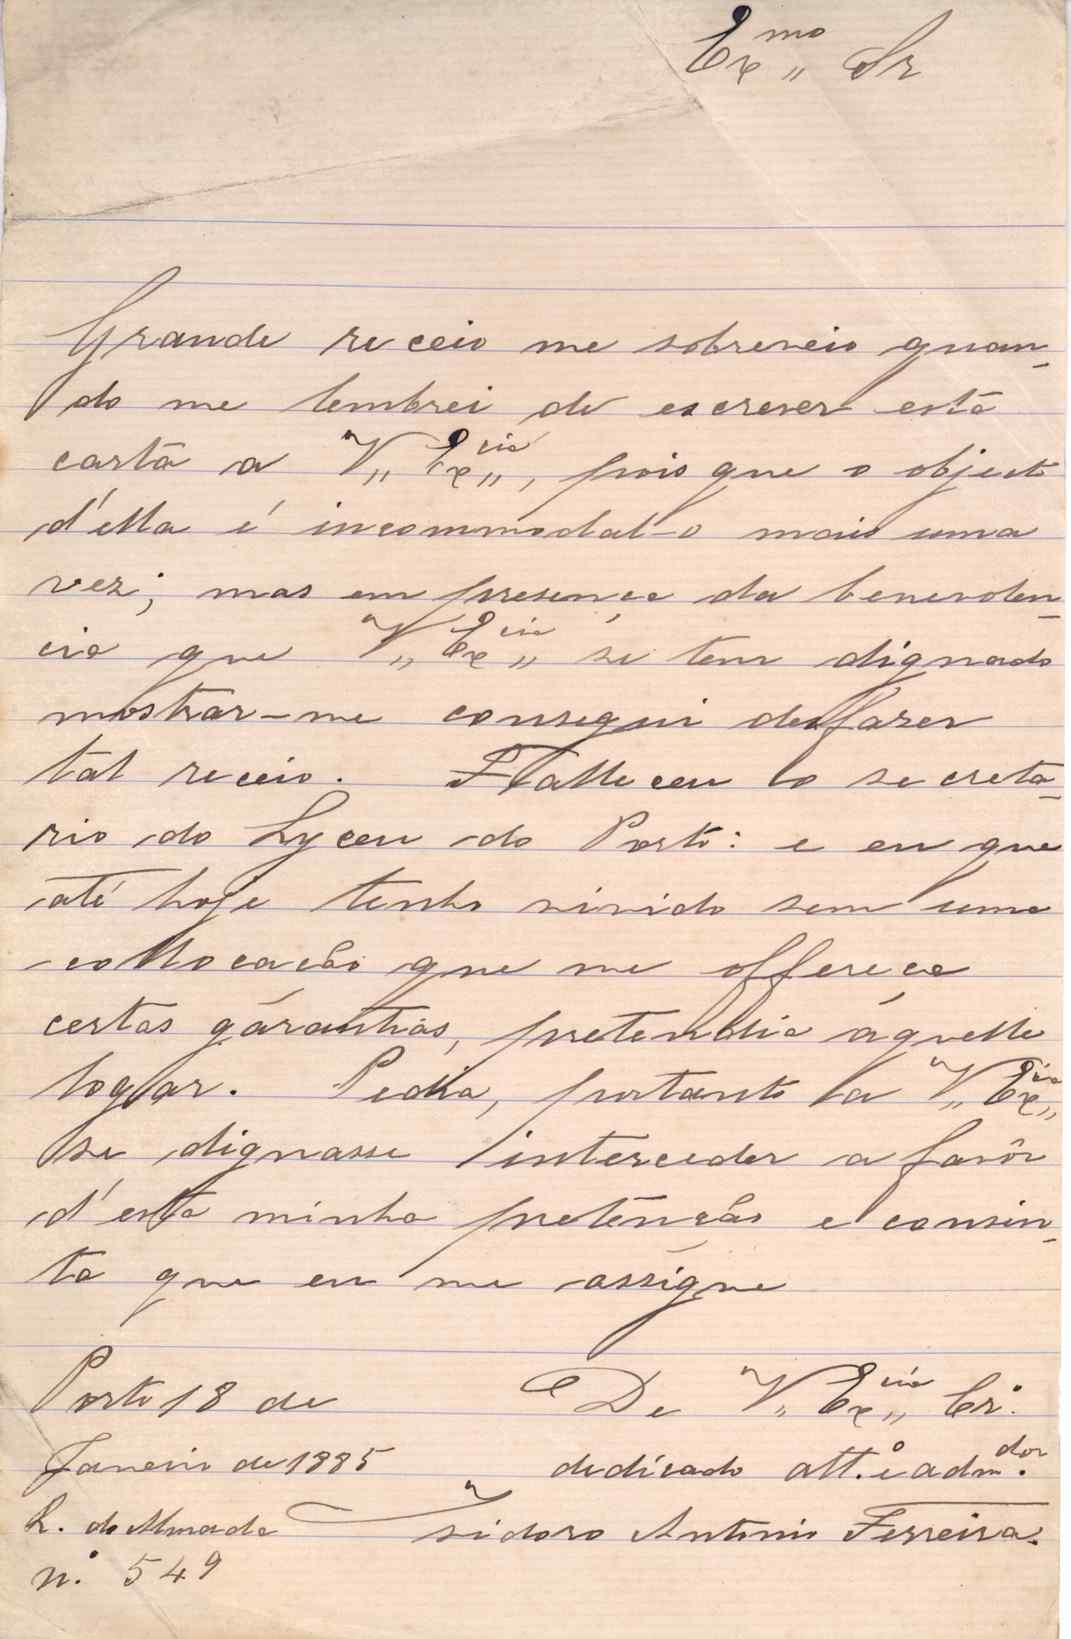 Exmo Sr
Grande receio me sobreveio quan-
do me lembrei de escrever esta
carta a V. Excia, pois que o objecto
d'ella é incommodal-o mais uma
vez; mas em presença da benevolen-
cia que V. Excia se tem dignado
mostrar-me consegui desfazer
tal receio. Falleceu o secreta-
rio do Lyceu do Porto: e eu que
até hoje tenho vivido sem uma
collocação que me offereça
certas garantias, pretendia aquelle
logar. Pedia, portanto a V. Excia
se dignasse interceder a favôr
d'esta minha pretenção e consin-
ta que eu me assigne
Porto 18 de
Janeiro de 1885
R. do Almada
n.º 549
De V. Excia Cr.º
dedicado att.º e adm.dor
Isidoro Antonio Ferreira.